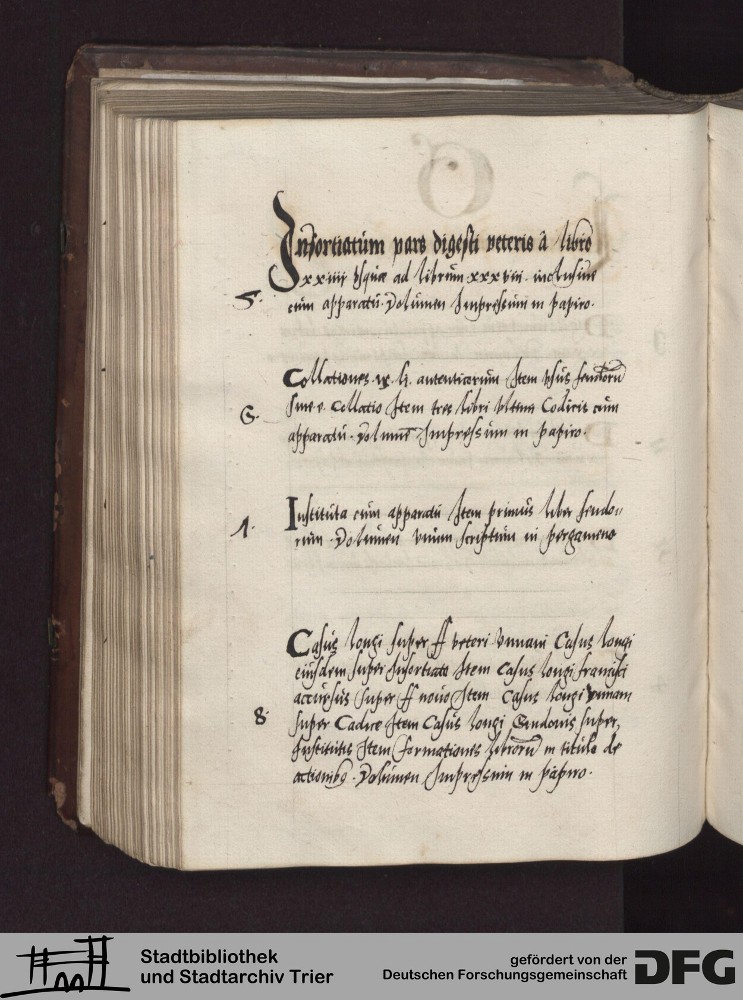 Infortiatum pars digesti veteris a libro
xxiiii vsque ad librum xxxviii inclusiue
5. cum apparatu. Volumen Impressum in papiro.
Collationes ix li. autenticorum Item vsus feudorū
6. siue x. Collatio Item tres libri vltimi Codicis cum
apparatu. Volumē Impressum in papiro.
Instituta cum apparatu Item primus liber feudo-
1. rum. Volumen vnum scriptum in pergameno
Casus longi super ff veteri viuiani Casus longi
eiusdem super Infortiato Item Casus longi francisci
accursius super ff nouo Item Casus longi viuiani
8. super Codice Item Casus longi Guidonis super
Institutis Item formationes librorū in titulo de
actionibꝰ. Volumen Impressum in papiro.
Stadtbibliothek
und Stadtarchiv Trier
gefördert von der
Deutschen Forschungsgemeinschaft
DFG